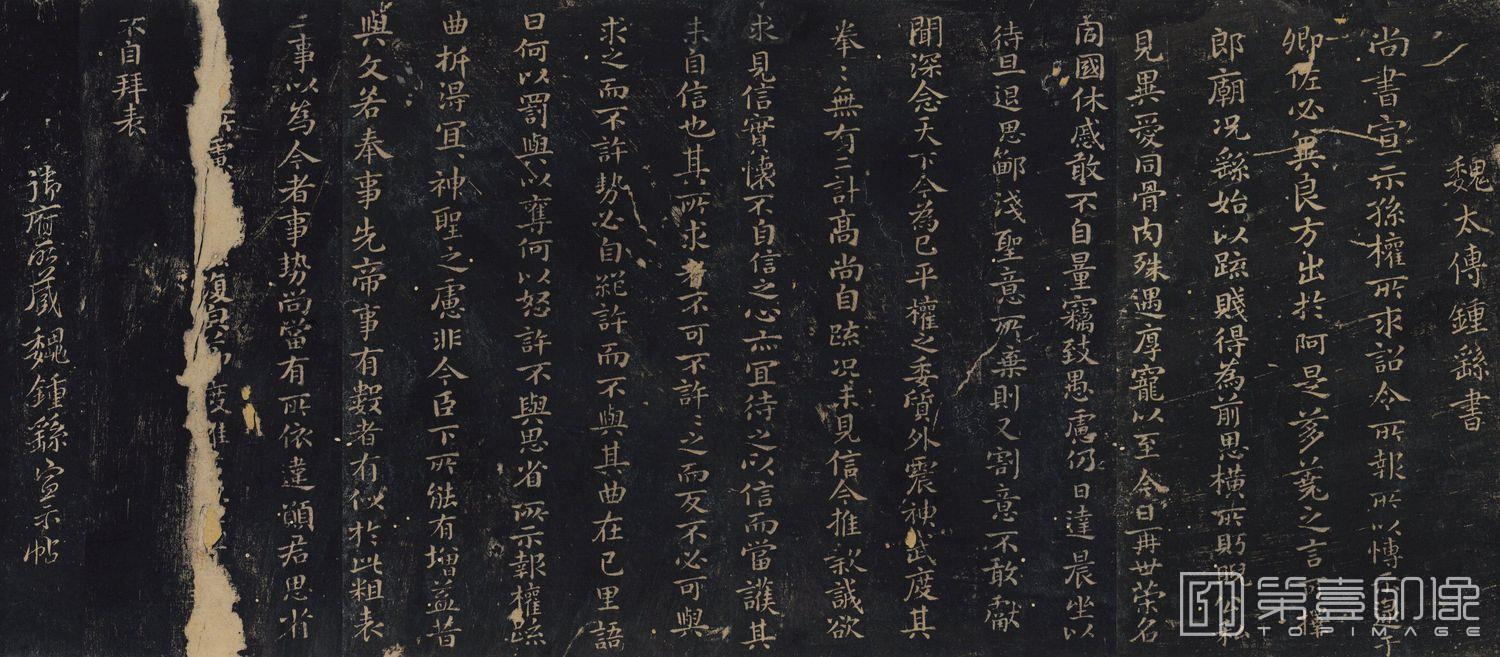 魏太傅鍾繇書
尚書宣示孫權所求詔令所報所以博示逮于
卿佐必兾良方出於阿是芻蕘之言可擇
郎廟况繇始以踈賤得為前恩橫所盻睨公私
見異愛同骨肉殊遇厚寵以至今日再世榮名
同國休慼敢不自量竊致愚慮仍日達晨坐以
待旦退思鄙淺聖意所棄則又割意不敢獻
聞深念天下今為已平權之委質外震神武度其
拳〻無有二計高尚自踈况未見信今推款誠欲
求見信實懷不自信之心亦宜待之以信而當護其
未自信也其所求者不可不許〻之而反不必可與
求之而不許勢必自絕許而不與其曲在已里語
曰何以罰與以奪何以怒許不與思省所示報權踈
曲折得冝〻神聖之慮非今臣下所能有增益昔
與文若奉事先帝事有數者有似於此粗表
二事以為今者事勢尚當有所依違願君思省
復貢 度
不自拜表
藏魏鍾繇宣示帖
第壹印像
TOPIMAGE